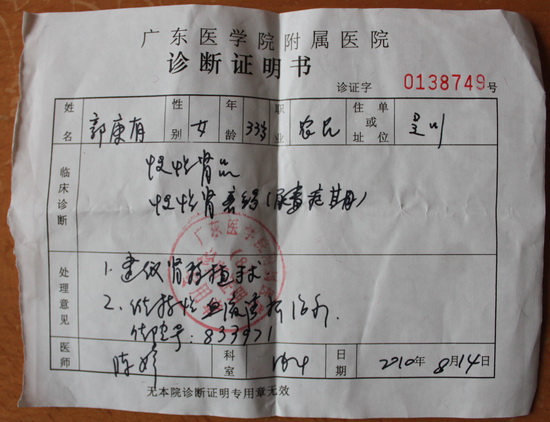 广东医学院附属医院
诊断证明书
诊证字 0138749号
姓名 郭康有 性别 女 年龄 33岁 职业 农民 住址或单位 吴川
临床诊断
慢性肾炎
慢性肾衰竭(尿毒症期)
处理意见
1.建议肾移植手术
2.维持性血液透析治疗.
住院号:833971
医师 陈 科室 日期 2010年8月14日
无本院诊断证明专用章无效